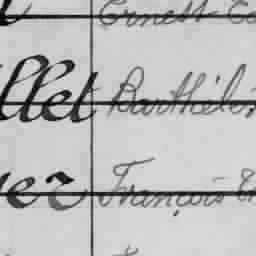 Ernest
llet Barthéle
er François